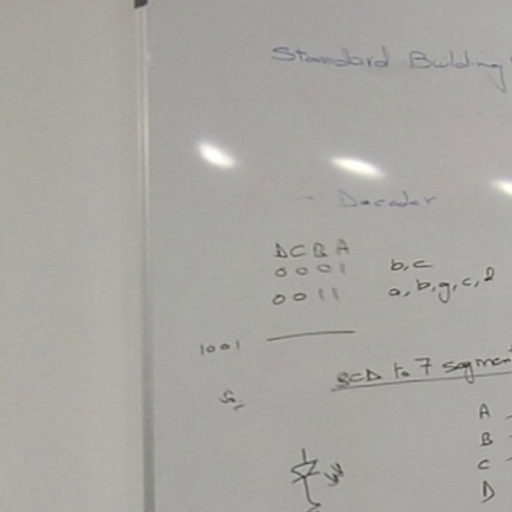 Standard Building
- Decoder
DCBA
0001 b,c
0011 a,b,g,c,d
1001
BCD to 7 segmen
A
B
C
D